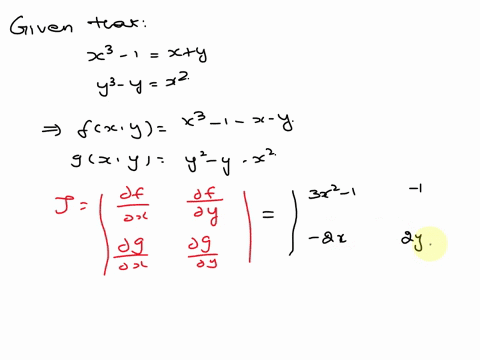 Given that:
x³ - 1 = x+y
y³ - y = x²
⇒ f(x,y) = x³ - 1 - x - y.
g(x,y) = y² - y - x²
J = | ∂f/∂x ∂f/∂y | = | 3x² - 1 -1
| ∂g/∂x ∂g/∂y | | -2x 2y.